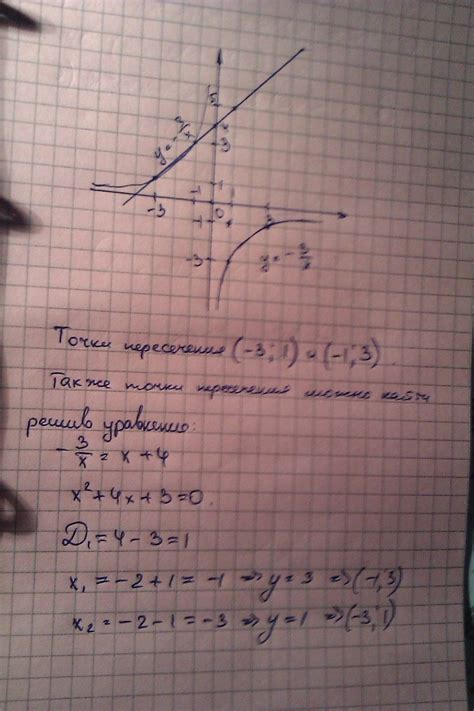 5
4
y = -3/x
3
1
-3
-1
1
0
-1
3
-3
y = -3/x
Точки пересечения (-3; 1) и (-1; 3).
Также точки пересечения можно найти
решив уравнение:
-3/x = x + 4
x² + 4x + 3 = 0.
D₁ = 4 - 3 = 1
x₁ = -2 + 1 = -1 => y = 3 => (-1; 3)
x₂ = -2 - 1 = -3 => y = 1 => (-3; 1)